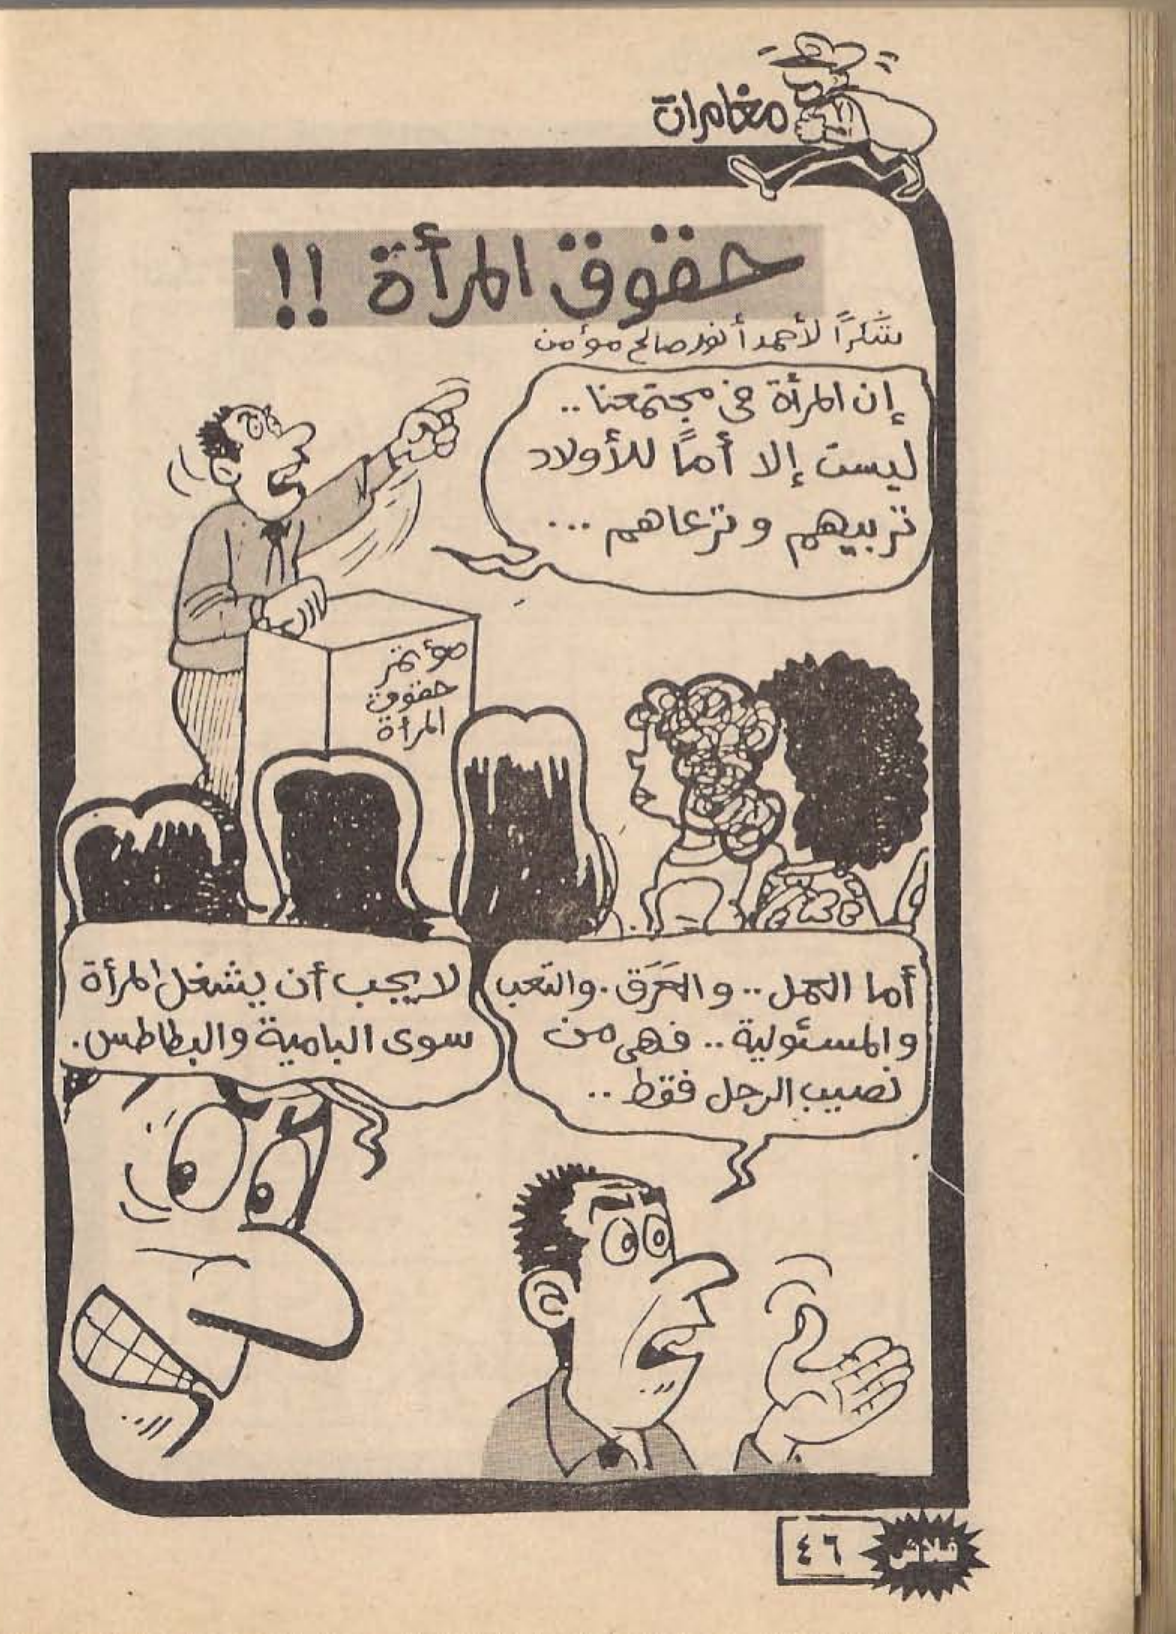 مغامرات
حقوق المرأة !!
شكرًا لأحمد أنور صالح مؤمن
إن المرأة في مجتمعنا ..
ليست إلا أمًا للأولاد
تربيهم وترعاهم ...
مؤتمر
حقوق
المرأة
أما العمل .. والعَرَق . والتعب
والمسئولية .. فهى من
نصيب الرجل فقط ..
لا يجب أن يشغل المرأة
سوى البامية والبطاطس .
فلاش
٤٦